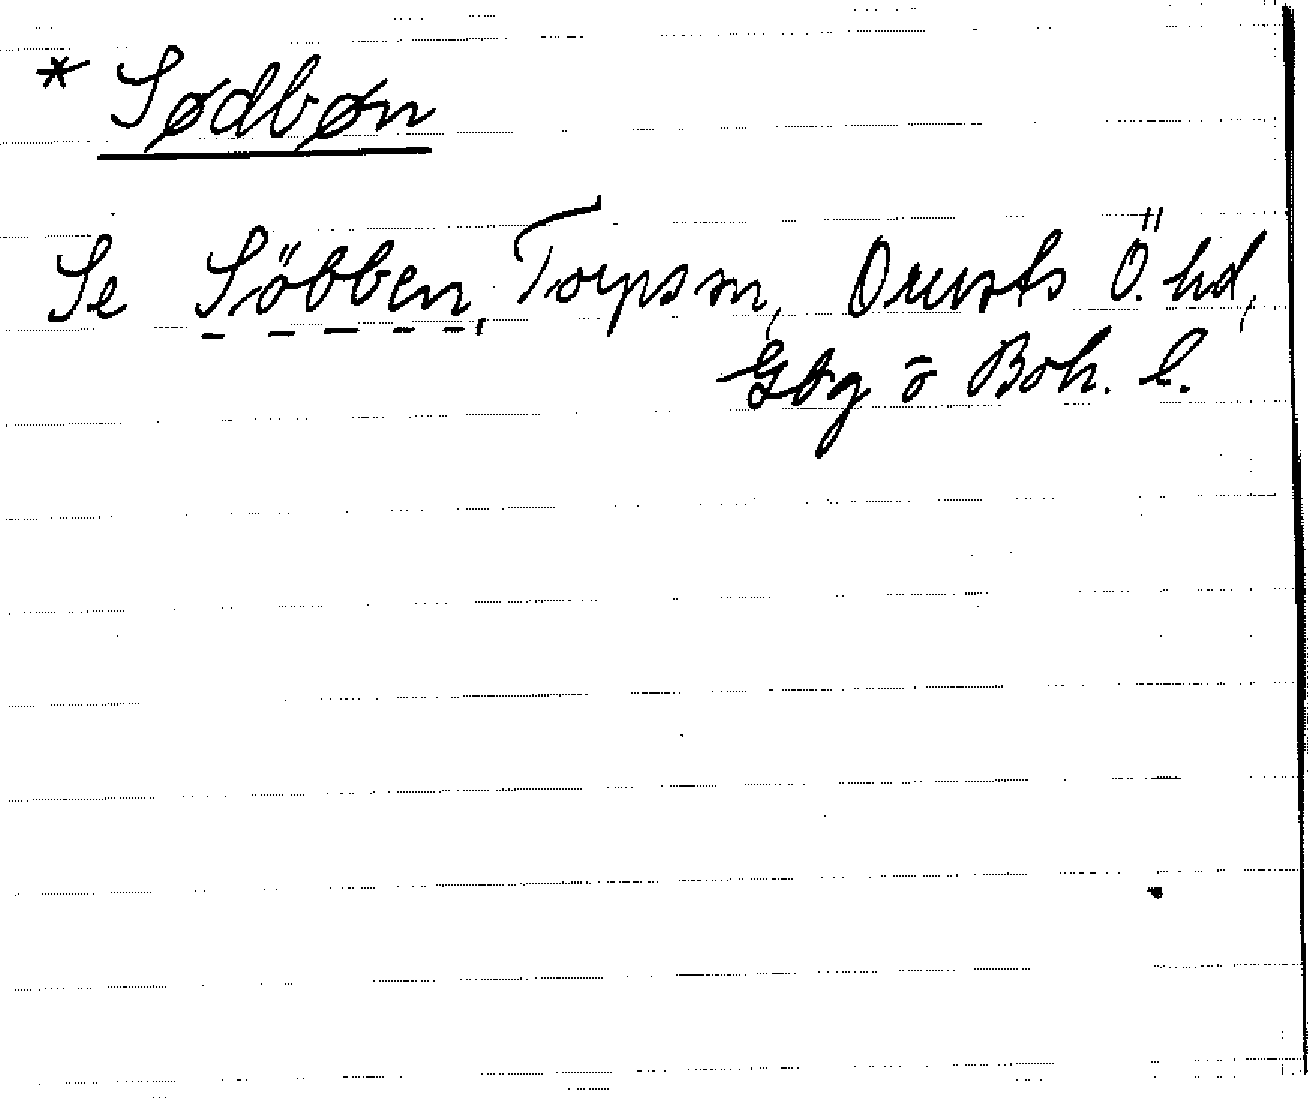 * Sødbøn
Se Söbben, Torps sn, Orusts Ö. hd,
Gbg o Boh. l.